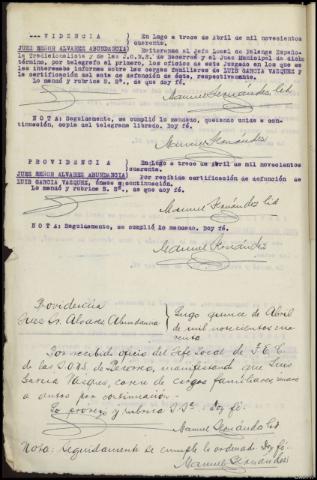 ---VIDENCIA
JUEZ SEÑOR ALVAREZ ABUNDANCIA)
En Lugo a trece de Abril de mil novecientos
cuarenta.
Reiteremse al Jefe Local de Falange Españo-
la Tradicionalista y de las J.O.N.S. de Becerreá y al Juez Municipal de dicho
término, por telegrafo al primero, los oficios de este Juzgado en los que se
les interesaba informe sobre las cargas familiares de LUIS GARCIA VAZQUEZ y
la certificación del acta de defunción de éste, respectivamente.
Lo mandó y rubrica S. Sª., de que doy fé.
Manuel Fernández
NOTA: Seguidamente, se cumplió lo mandado, quedando unida a con-
tinuación, copia del telegrama librado. Doy fé.
Manuel Fernández
PROVIDENCIA
JUEZ SEÑOR ALVAREZ ABUNDANCIA)
En Lugo a trece de Abril de mil novecientos
cuarenta.
Por recibida certificación de defunción de
LUIS GARCIA VAZQUEZ, únase a continuación.
Lo mandó y rubrica S. Sª., de que doy fé.
Manuel Fernández
NOTA: Seguidamente, se cumplió lo mandado. Doy fé.
Manuel Fernández
Providencia
Juez Sr. Alvarez Abundancia
Lugo quince de Abril
de mil novecientos cua
renta
Por recibido oficio del Jefe Local de F.E.T.
de las J.O.N.S. de Becerreá, manifestando que Luis
Garcia Vazquez, carece de cargas familiares, únase
a autos por continuación.
Lo proveyó y rubrica S.Sª. Doy fé.
Manuel Fernández
Nota: Seguidamente se cumple lo ordenado. Doy fé.
Manuel Fernández